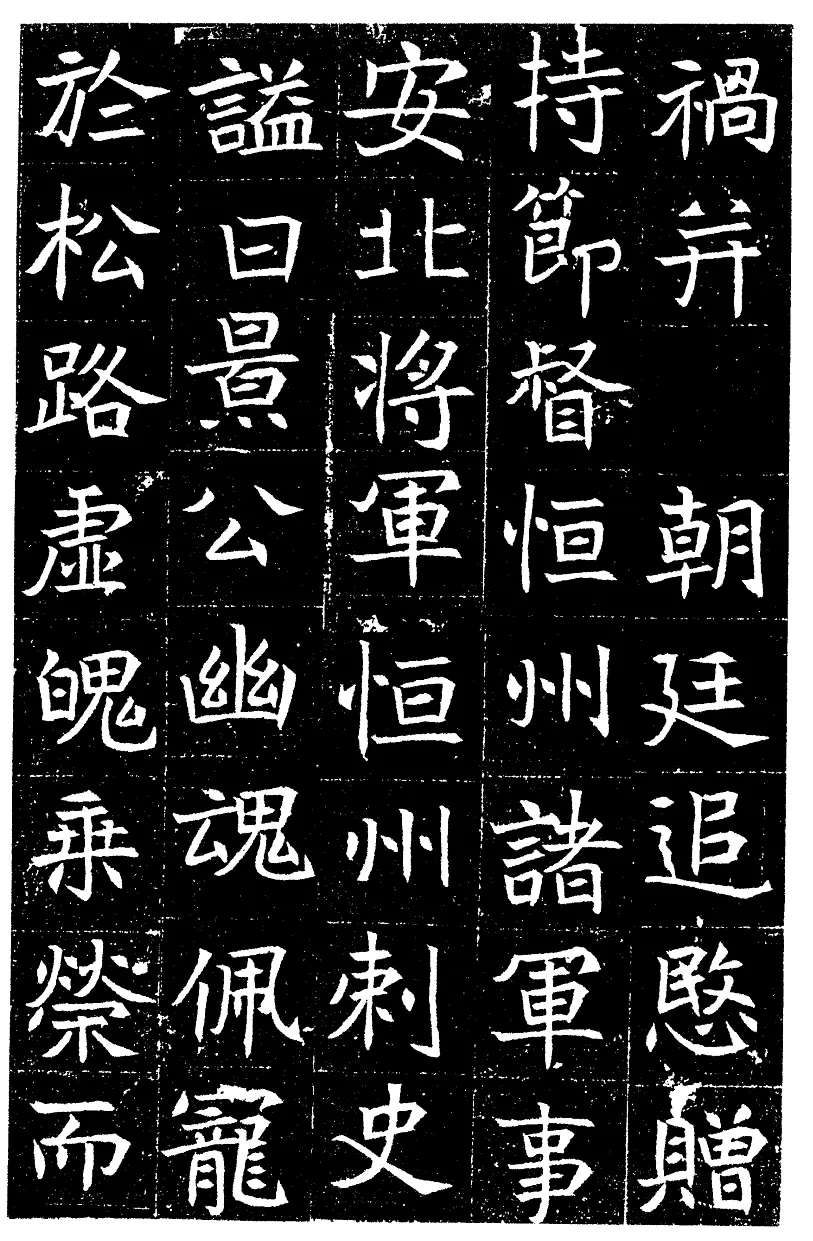 禍并 朝廷追愍贈
持節督恒州諸軍事
安北將軍恒州刺史
謚曰景公幽魂佩寵
於松路虛魄乗榮而